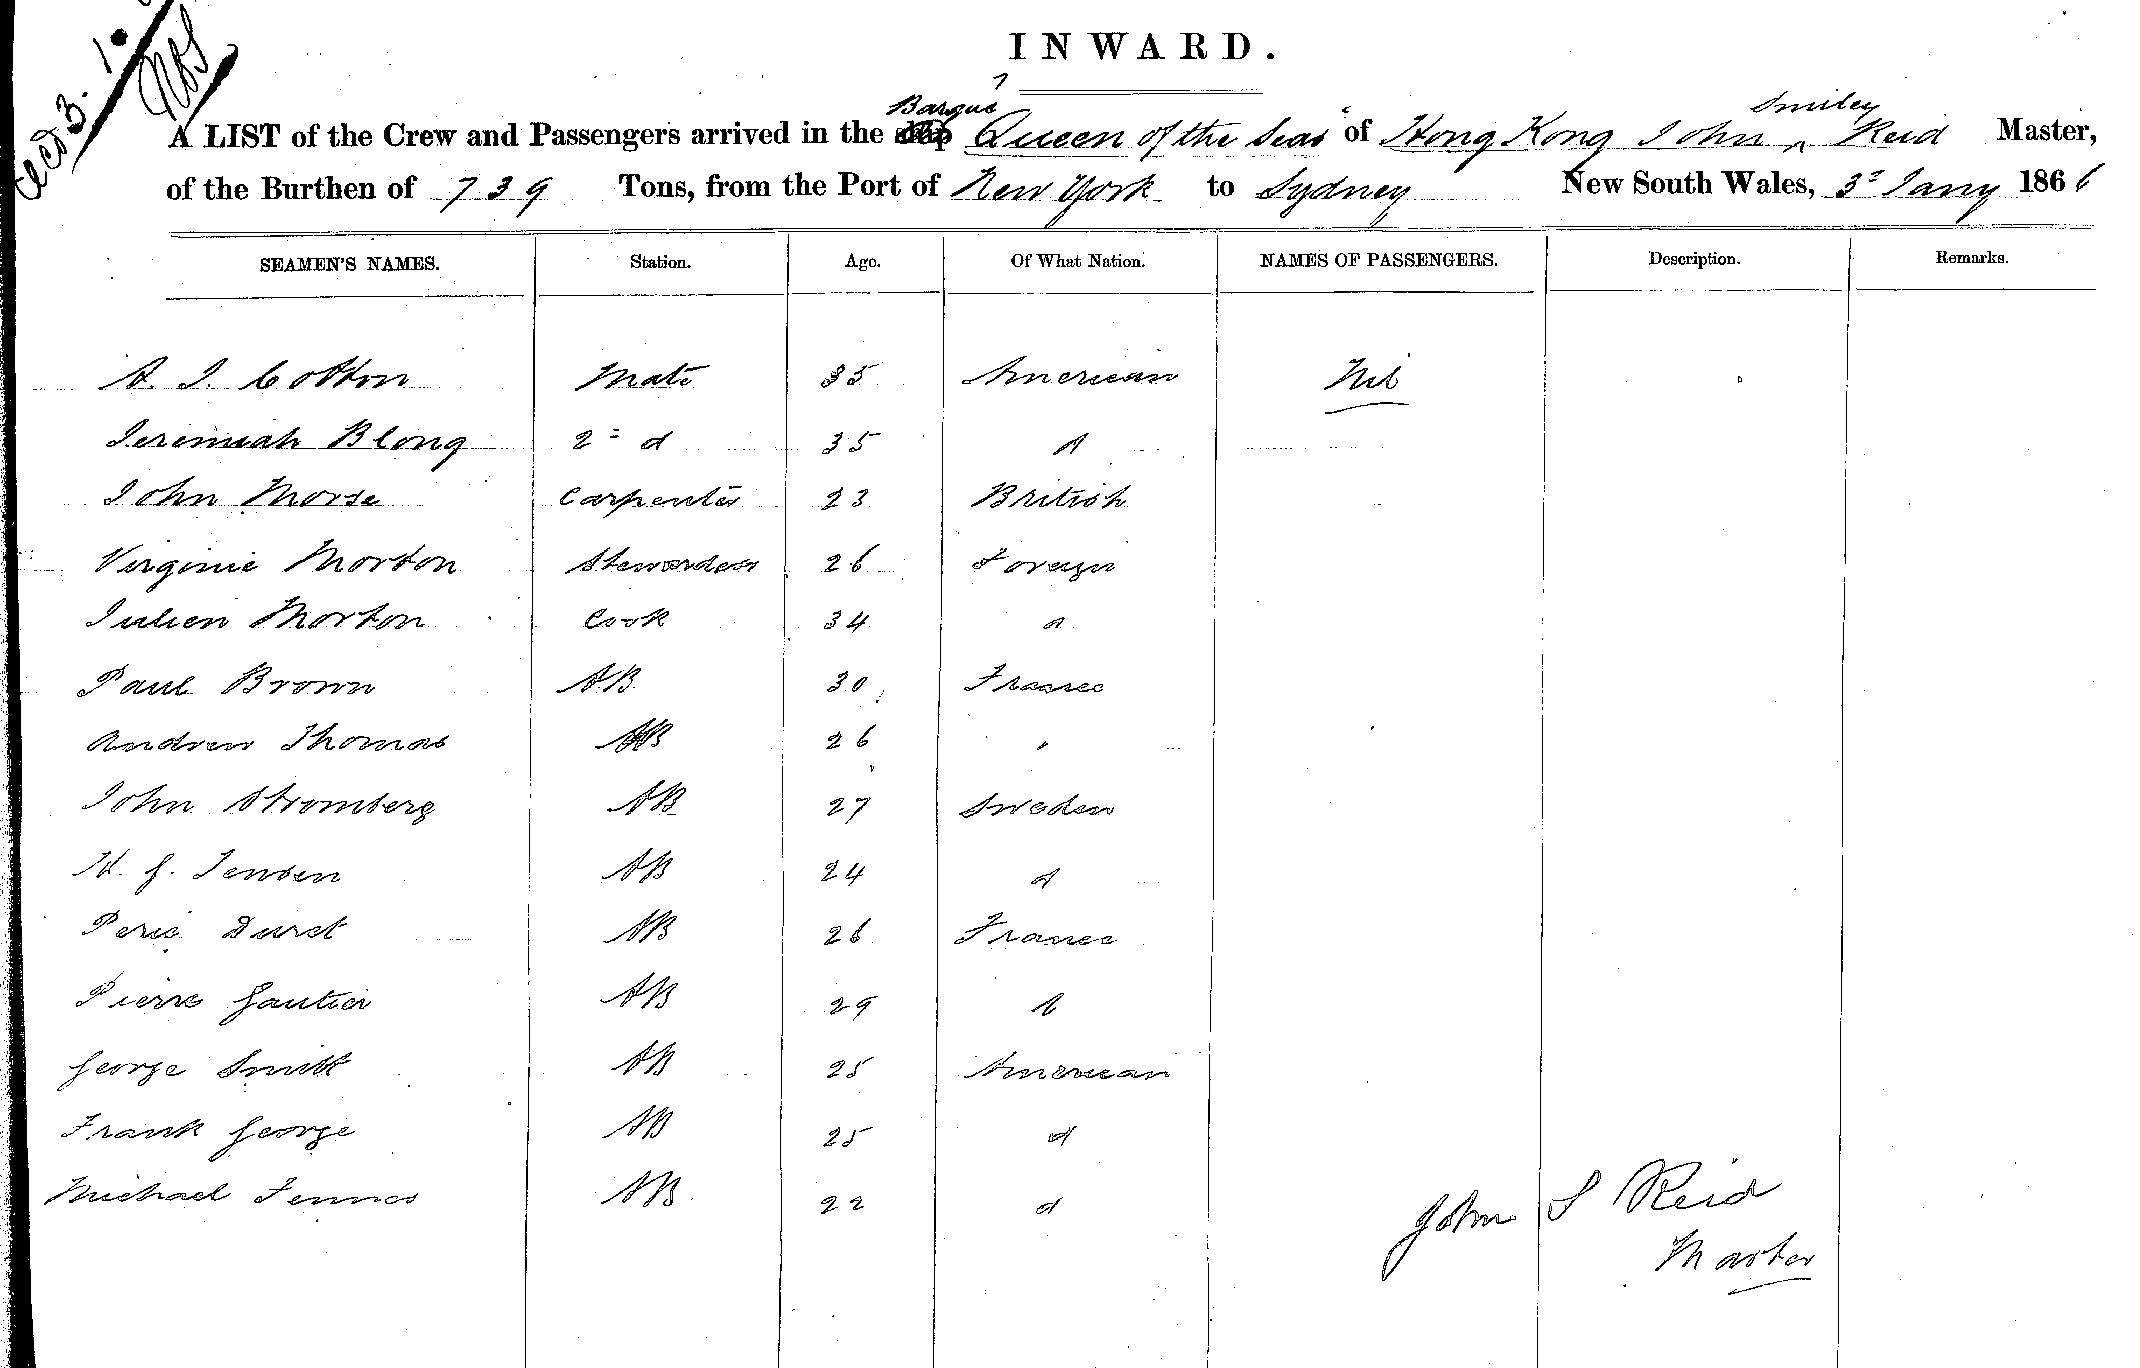 INWARD.
Barque
Smiley
A LIST of the Crew and Passengers arrived in the ship "Queen of the Seas" of Hong Kong John ‸ Reid Master,
of the Burthen of 739 Tons, from the Port of New York to Sydney New South Wales, 3d Jany 1866
SEAMEN'S NAMES. Station. Age. Of What Nation. NAMES OF PASSENGERS. Description. Remarks.
A. J. Cotton Mate 35 American Nil
Jeremiah Blong 2d d 35 d
John Morse Carpenter 23 British
Virginie Morton Stewardess 26 Foreign
Julien Morton Cook 34 d
Paul Brown AB 30 France
Andrew Thomas AB 26 "
John Stromberg AB 27 Sweden
H. J. Jensen AB 24 d
Peric Duret AB 26 France
Pierre Gautier AB 29 d
George Smith AB 25 American
Frank George AB 25 d
Michael Fennes AB 22 d
John S Reid
Master